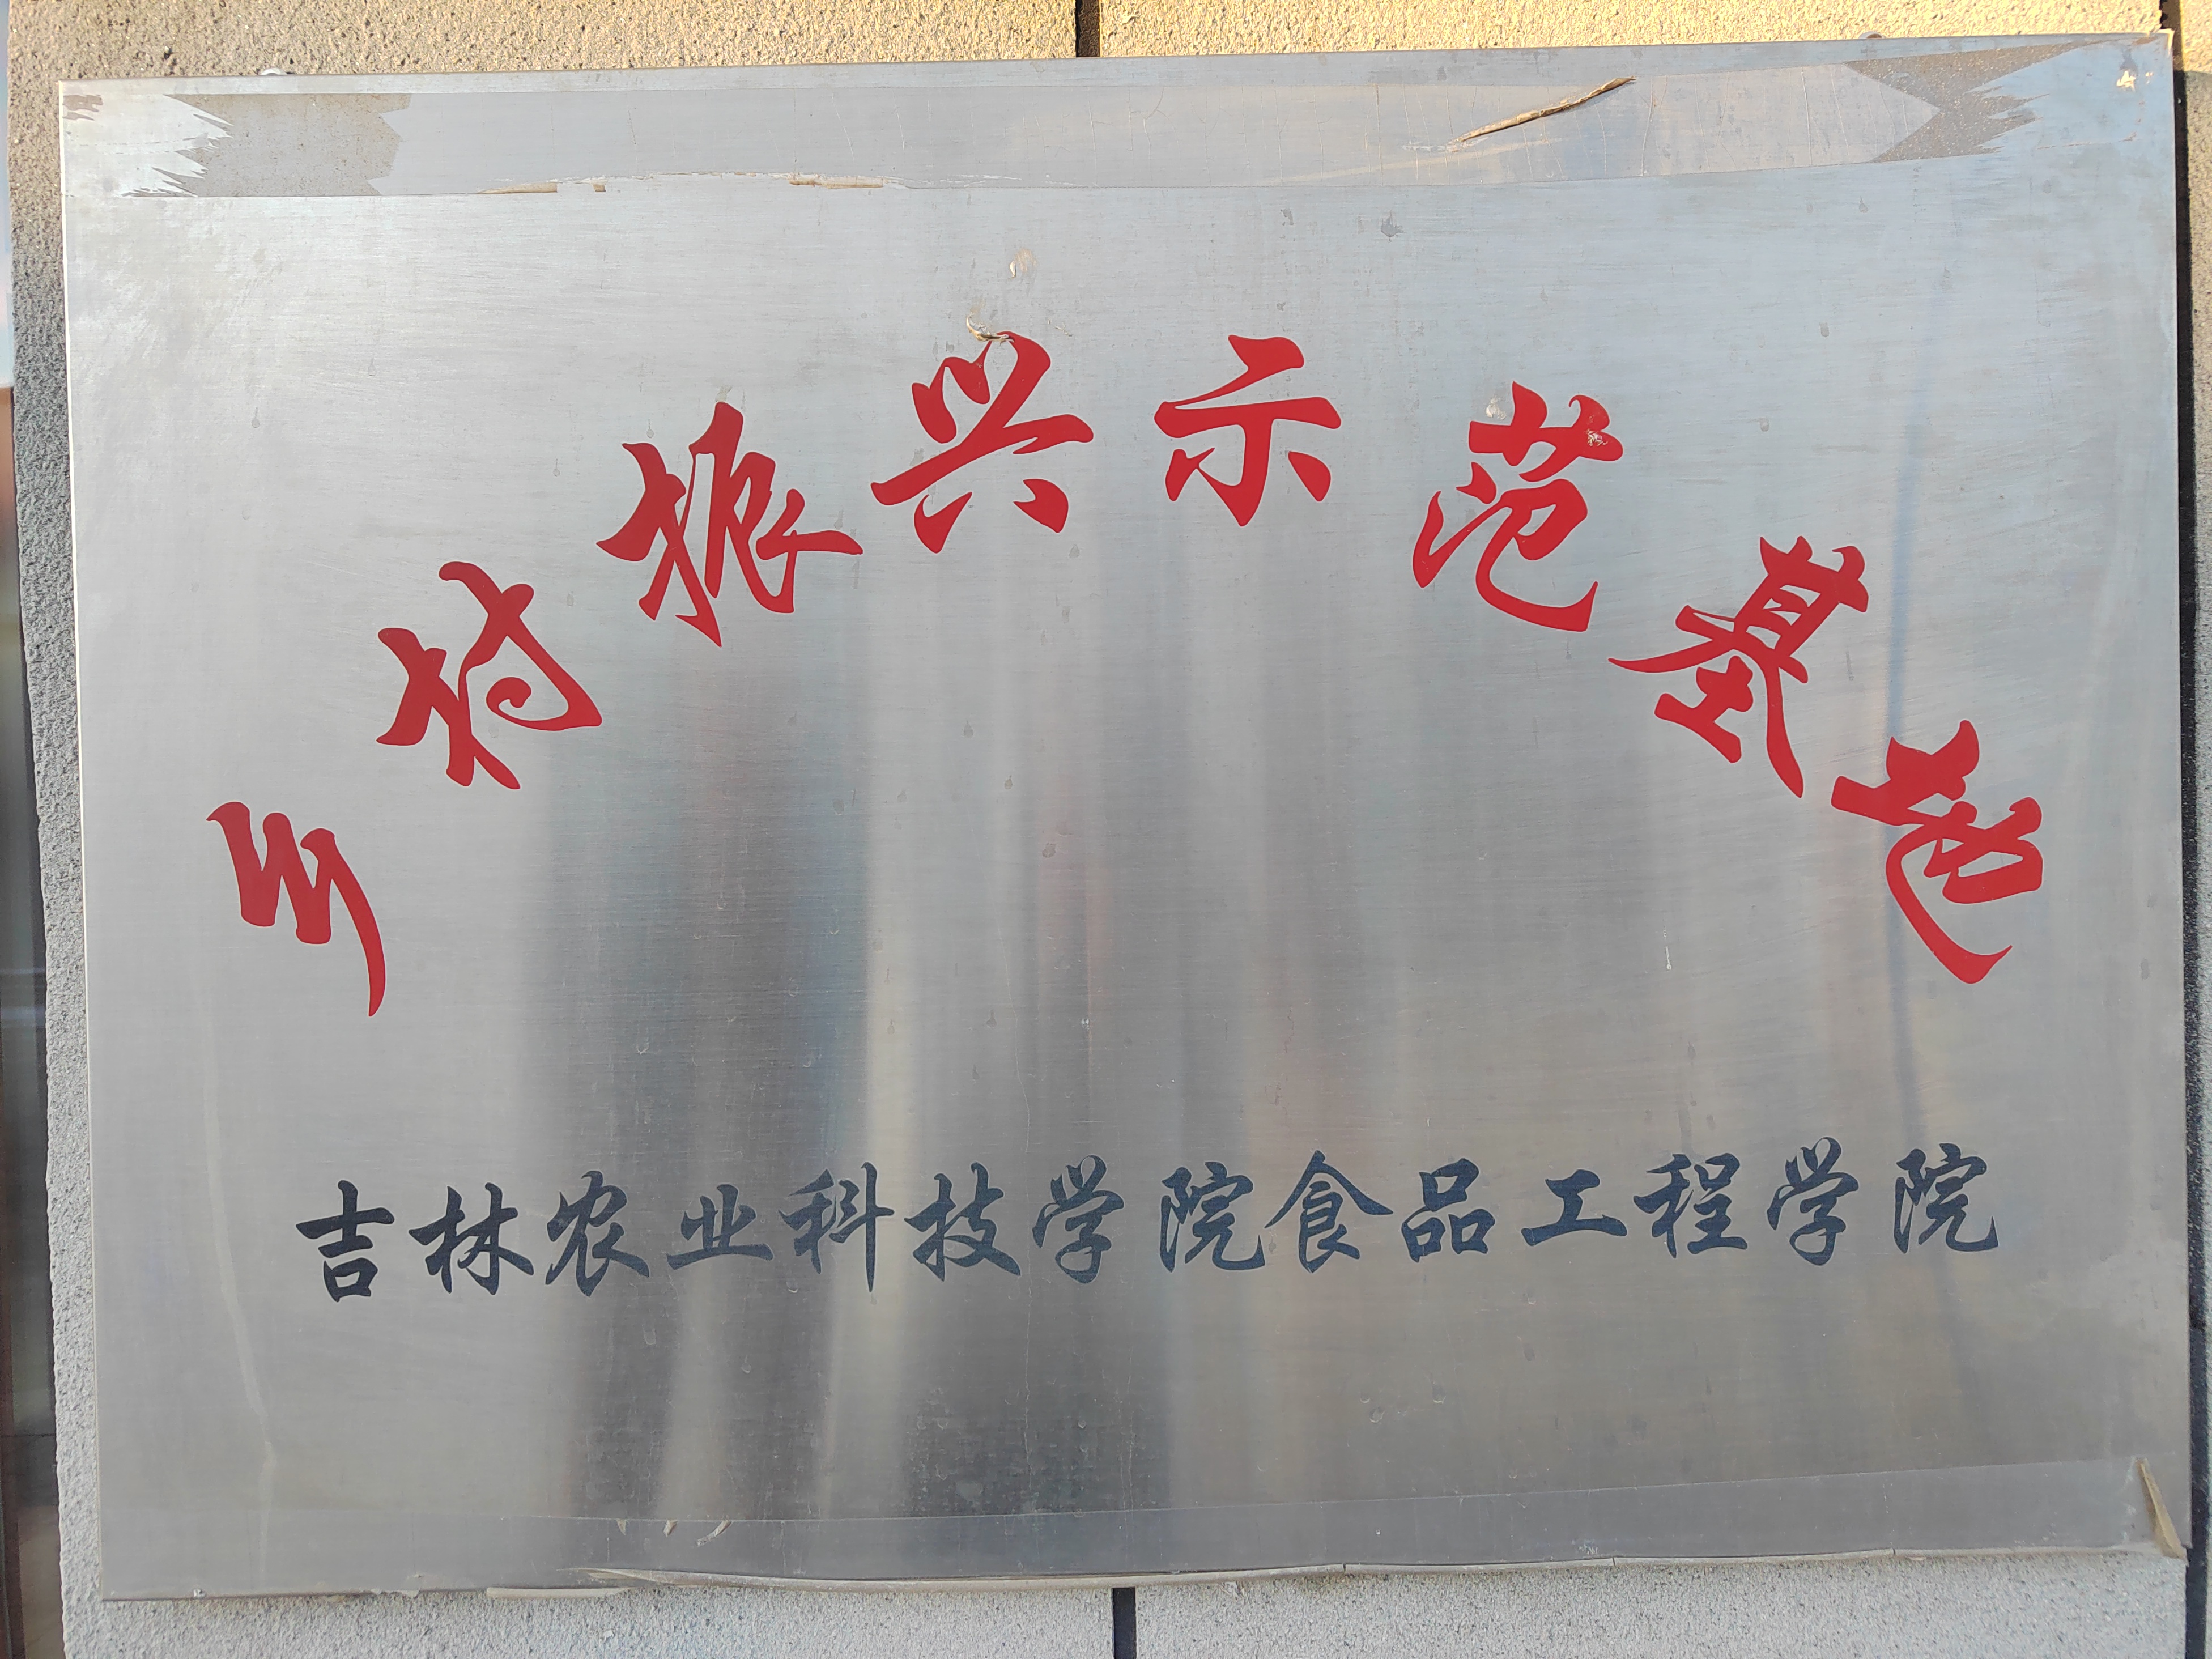 乡村振兴示范基地
吉林农业科技学院食品工程学院